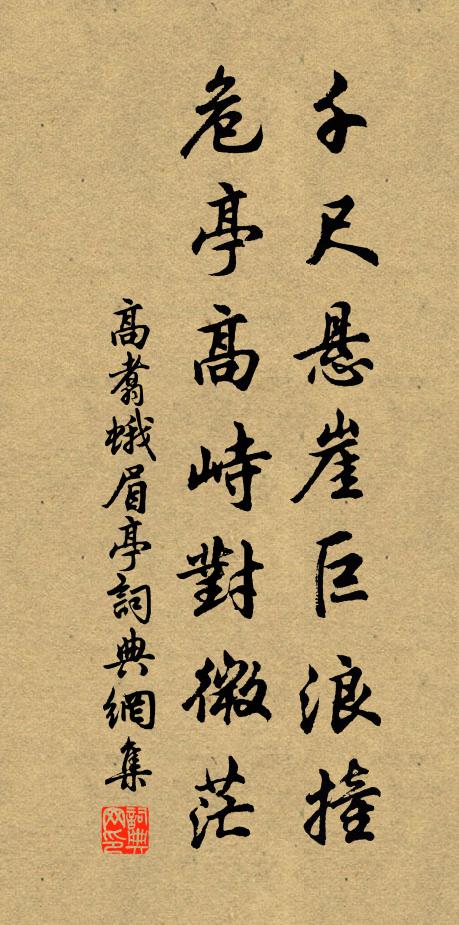 千尺悬崖巨浪撞
危亭高峙對微茫
高翥蛾眉亭詞典網集
詞典
网印